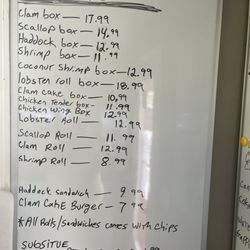 Clam box — 17.99
Scallop box — 14.99
Haddock box — 12.99
Shrimp box — 11.99
Coconut Shrimp box — 12.99
lobster roll box — 18.99
Clam cake box — 10.99
Chicken Tender box — 11.99
Chicken Wing Box — 12.99
Lobster Roll — 12.99
Scallop Roll — 11.99
Clam Roll — 12.99
Shrimp Roll — 8.99
Haddock sandwich — 9.99
Clam Cake Burger — 7.99
*All Rolls/Sandwiches comes with chips
SUBSITUE